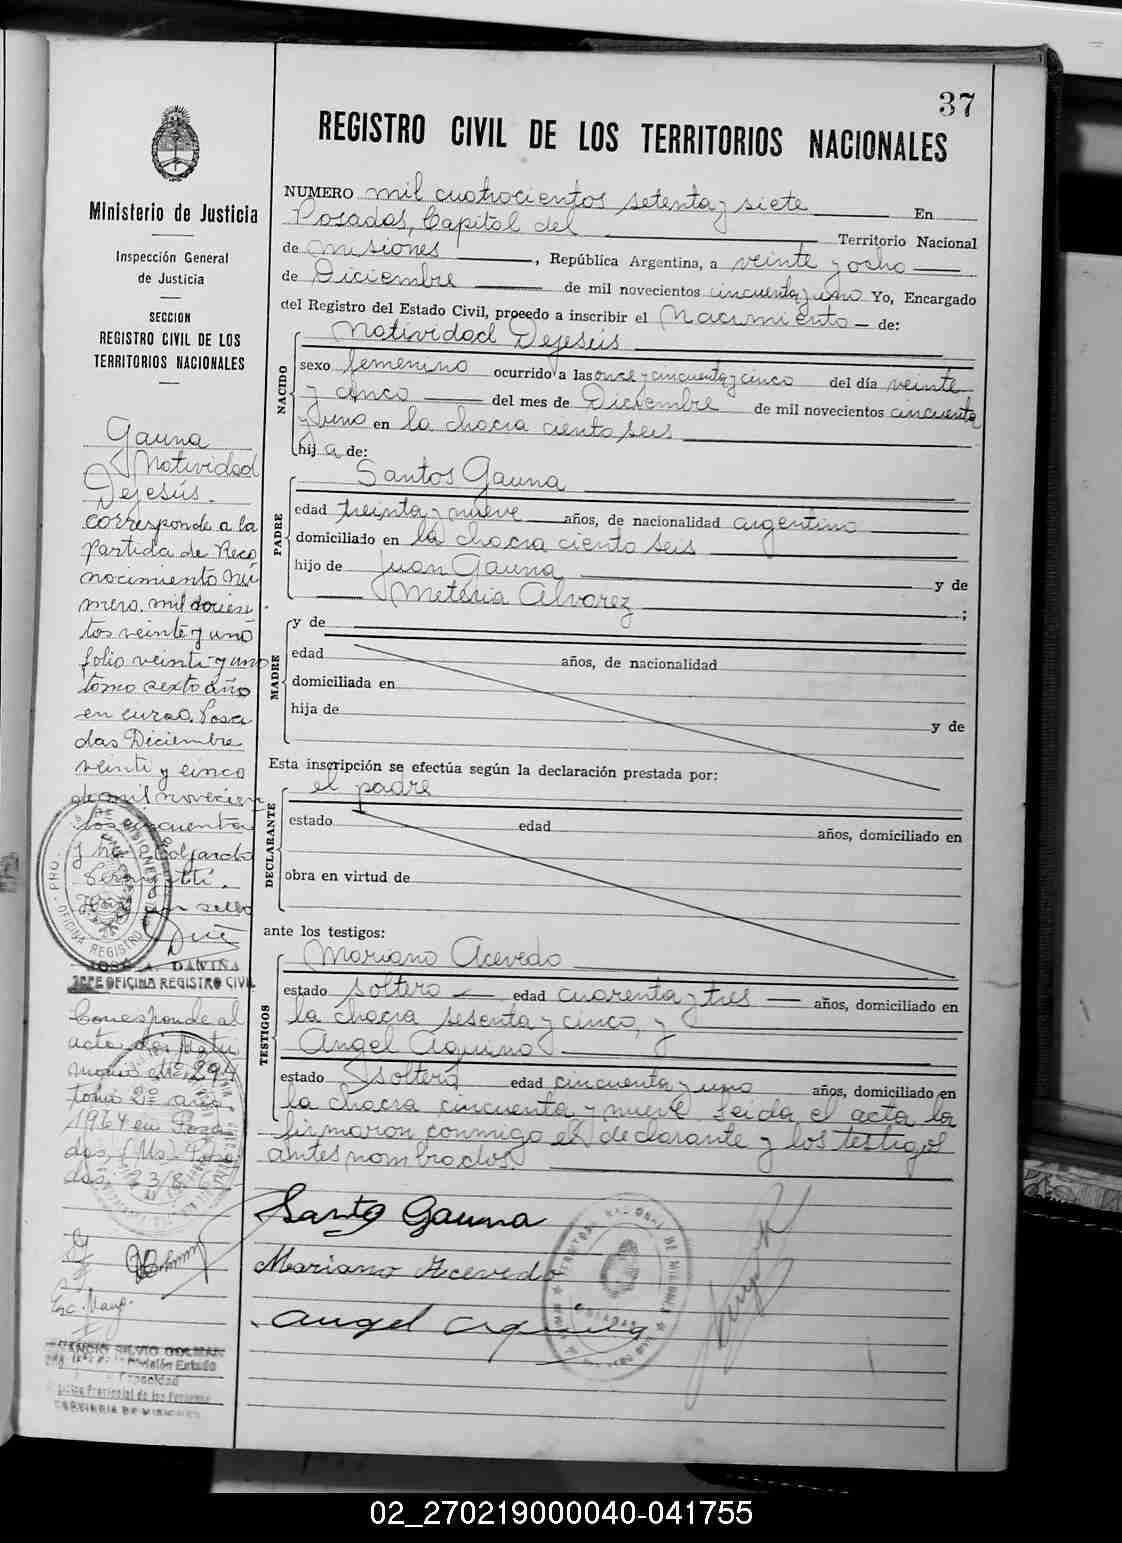 37
REGISTRO CIVIL DE LOS TERRITORIOS NACIONALES
Ministerio de Justicia
Inspección General
de Justicia
SECCION
REGISTRO CIVIL DE LOS
TERRITORIOS NACIONALES
NUMERO mil cuatrocientos setenta y siete En
Posadas, Capital del Territorio Nacional
de Misiones, República Argentina, a veinte y ocho
de Diciembre de mil novecientos cincuenta y uno Yo, Encargado
del Registro del Estado Civil, procedo a inscribir el Nacimiento de:
NACIDO
Natividad Dejesús
sexo femenino ocurrido a las once y cincuenta y cinco del día veinte
y cinco del mes de Diciembre de mil novecientos cincuenta
y uno en la chacra ciento seis
hija de:
PADRE
Santos Gauna
edad treinta y nueve años, de nacionalidad argentino
domiciliado en la chacra ciento seis
hijo de Juan Gauna y de
Meteria Alvarez;
MADRE
y de
edad años, de nacionalidad
domiciliada en
hija de y de
Esta inscripción se efectúa según la declaración prestada por:
DECLARANTE
el padre
estado edad años, domiciliado en
obra en virtud de
ante los testigos:
TESTIGOS
Mariano Acevedo
estado soltero edad cuarenta y tres años, domiciliado en
la chacra sesenta y cinco, y
Angel Aquino
estado soltero edad cincuenta y uno años, domiciliado en
la chacra cincuenta y nueve Leida el acta la
firmaron conmigo el declarante y los testigos
antes nombrados
Santo Gauna
Mariano Acevedo
Angel Aquino
Gauna
Natividad
Dejesús.
corresponde a la
partida de Reco
nocimiento nú
mero. mil doscien
tos veinte y uno
folio veinti y uno
tomo sexto año
en curso. Posa
das Diciembre
veinti y cinco
de mil novecien
tos cincuenta
y
Hay un sello
JOSÉ A. DAVIÑA
JEFE OFICINA REGISTRO CIVIL
Corresponde al
acta de Matri
monio Nº 294
tomo 2º año
1964 en Posa
das, (Ms) Posa
das,
Enc.
SILVIO
División Estado
Capacidad
Provincial de las Personas
PROVINCIA DE MISIONES
02_270219000040-041755